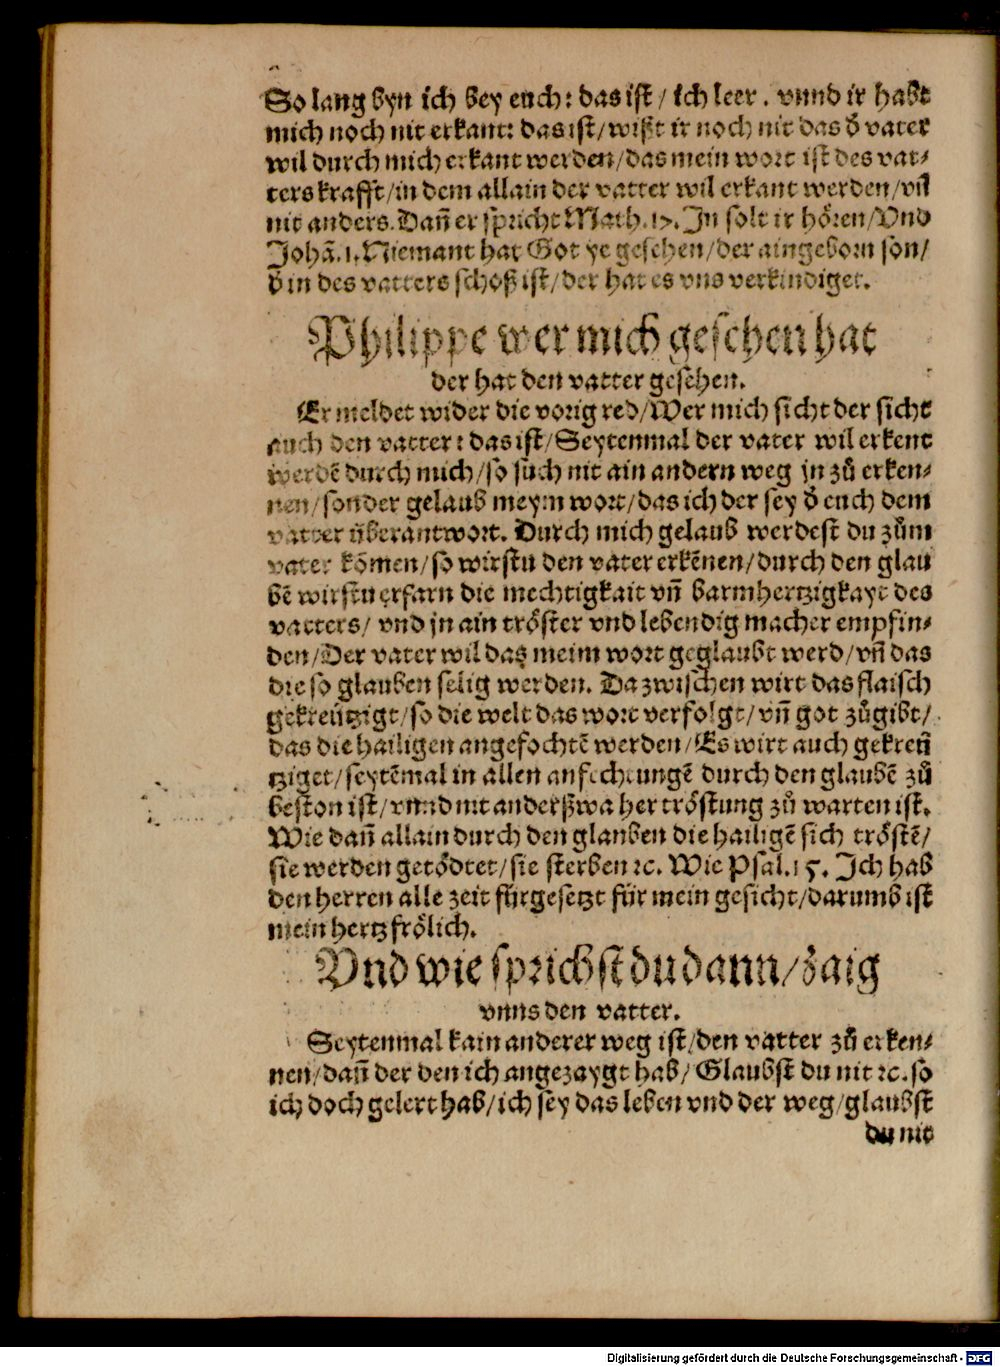 So lang byn ich bey euch: das ist / ich leer. vnnd ir habt
mich noch nit erkant: das ist/wißt ir noch nit das ð vater
wil durch mich erkant werden/das mein wort ist des vat⸗
ters krafft/in dem allain der vatter wil erkant werden/vñ
nit anders. Dañ er spricht Math. 17. Jn solt ir hören/Vnd
Johã. 1. Niemant hat Got ye gesehen/der aingeborn son/
ð in des vatters schoß ist/der hat es vns verkündiget.
Philippe wer mich gesehen hat
der hat den vatter gesehen.
Er meldet wider die vorig red/Wer mich sicht der sicht
auch den vatter: das ist/Seytenmal der vater wil erkent
werdẽ durch mich/so such nit ain andern weg jn zů erken⸗
nen/sonder gelaub meym wort/das ich der sey ð euch dem
vatter überantwort. Durch mich gelaub werdest du zům
vater kõmen/so wirstu den vater erkẽnen/durch den glau
bẽ wirstu erfarn die mechtigkait vñ barmhertzigkayt des
vatters/ vnd jn ain tröster vnd lebendig macher empfin⸗
den/Der vater wil das meim wort geglaubt werd/vñ das
die so glauben selig werden. Dazwischen wirt das flaisch
gekreützigt/so die welt das wort verfolgt/vñ got zůgibt/
das die hailigen angefochtẽ werden/Es wirt auch gekreü
tziget/seytẽmal in allen anfechtungẽ durch den glaubẽ zů
beston ist/vnnd nit anderßwa her tröstung zů warten ist.
Wie dañ allain durch den glauben die hailigẽ sich tröstẽ/
sie werden getödtet/sie sterben ꝛc. Wie Psal. 15. Jch hab
den herren alle zeit fürgesetzt für mein gesicht/darumb ist
mein hertz frölich.
Vnd wie sprichst du dann/zaig
vnns den vatter.
Seytenmal kain anderer weg ist/den vatter zů erken⸗
nen/dañ der den ich angezaygt hab/ Glaubst du nit ꝛc. so
ich doch gelert hab/ich sey das leben vnd der weg/glaubst
du nit
Digitalisierung gefördert durch die Deutsche Forschungsgemeinschaft - DFG